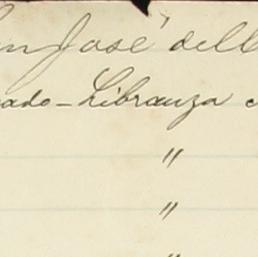 José dell
ado - Libranza
"
"
"